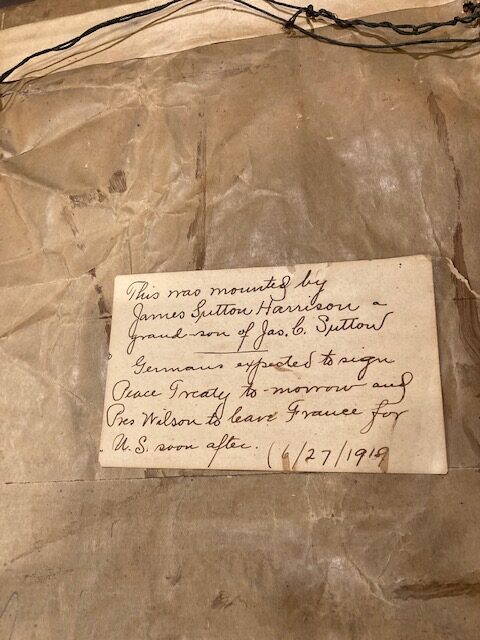 This was mounted by
James Sutton Harrison a
grand-son of Jas. C. Sutton
Germans expected to sign
Peace Treaty to-morrow and
Pres Wilson to leave France for
U.S. soon after. (6/27/1919